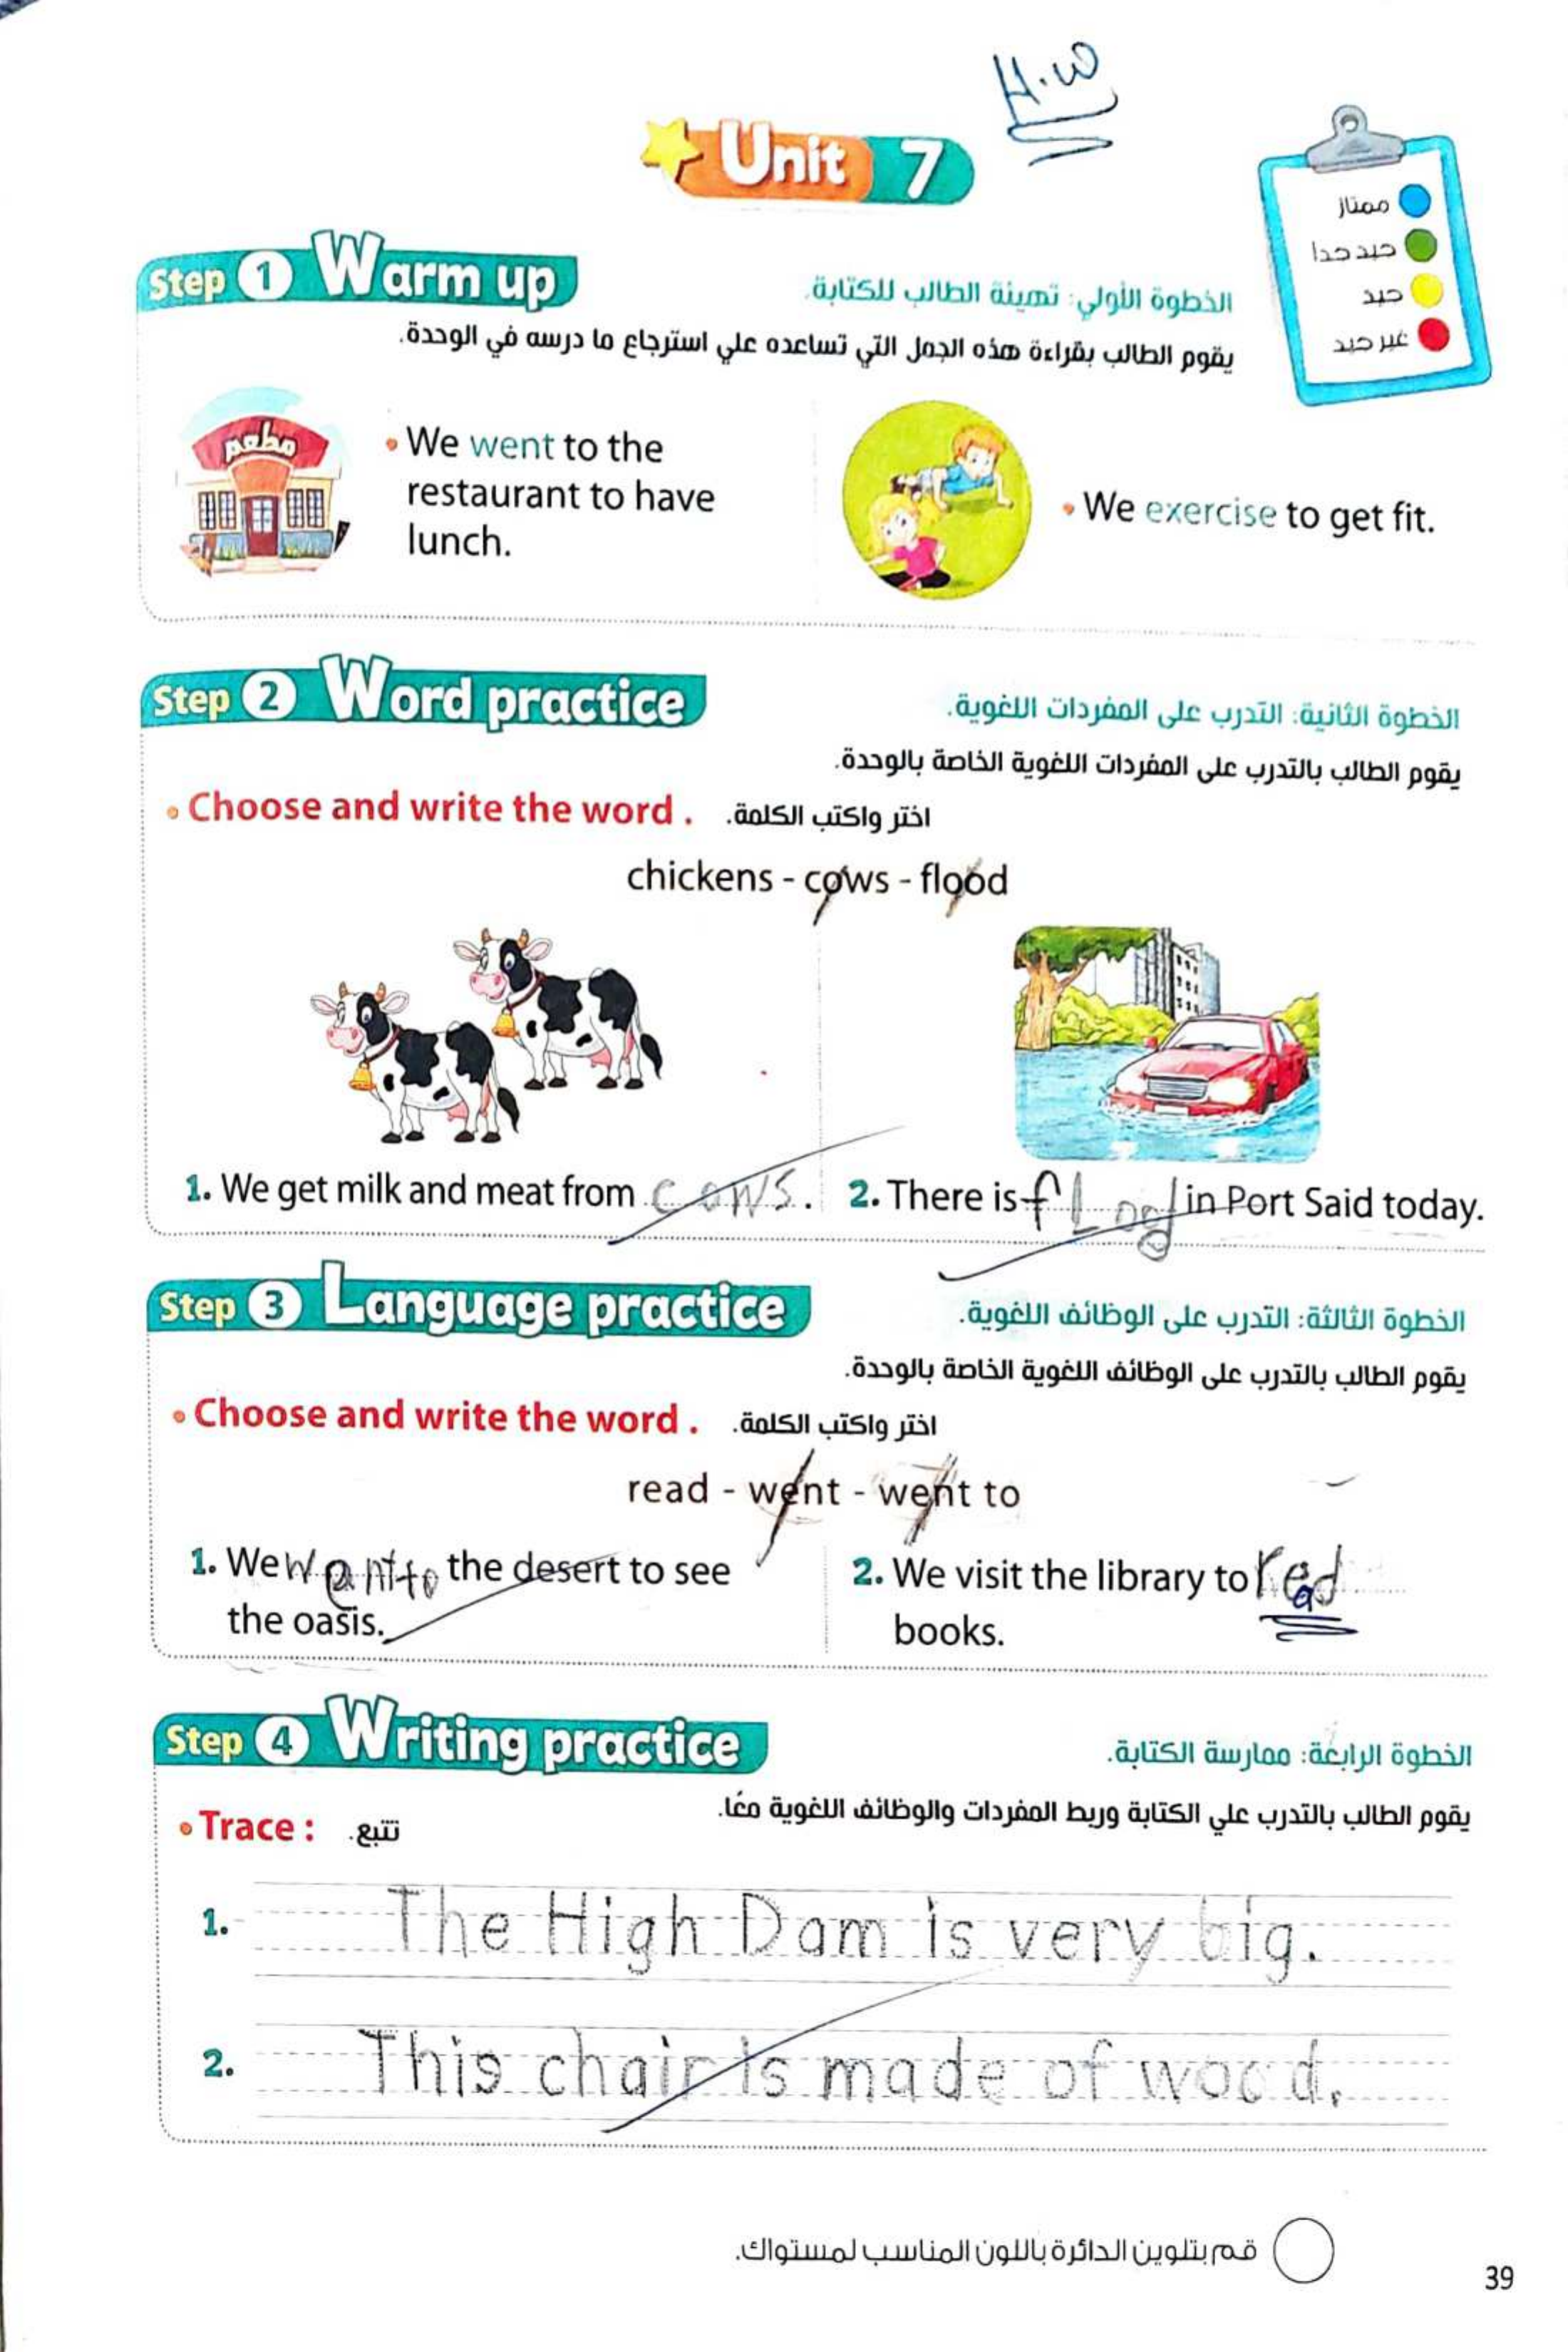 H.W
Unit 7
ممتاز
جيد جدا
جيد
غير جيد
Step 1 Warm up
الخطوة الأولي: تهيئة الطالب للكتابة.
يقوم الطالب بقراءة هذه الجمل التي تساعده علي استرجاع ما درسه في الوحدة.
مطعم
• We went to the
restaurant to have
lunch.
• We exercise to get fit.
Step 2 Word practice
الخطوة الثانية: التدرب على المفردات اللغوية.
يقوم الطالب بالتدرب على المفردات اللغوية الخاصة بالوحدة.
• Choose and write the word . اختر واكتب الكلمة.
chickens - cows - flood
1. We get milk and meat from cows.
2. There is flood in Port Said today.
Step 3 Language practice
الخطوة الثالثة: التدرب على الوظائف اللغوية.
يقوم الطالب بالتدرب على الوظائف اللغوية الخاصة بالوحدة.
• Choose and write the word . اختر واكتب الكلمة.
read - went - went to
1. We went to the desert to see
the oasis.
2. We visit the library to read
books.
Step 4 Writing practice
الخطوة الرابعة: ممارسة الكتابة.
يقوم الطالب بالتدرب علي الكتابة وربط المفردات والوظائف اللغوية معًا.
• Trace : تتبع.
1. The High Dam is very big.
2. This chair is made of wood.
قم بتلوين الدائرة باللون المناسب لمستواك.
39